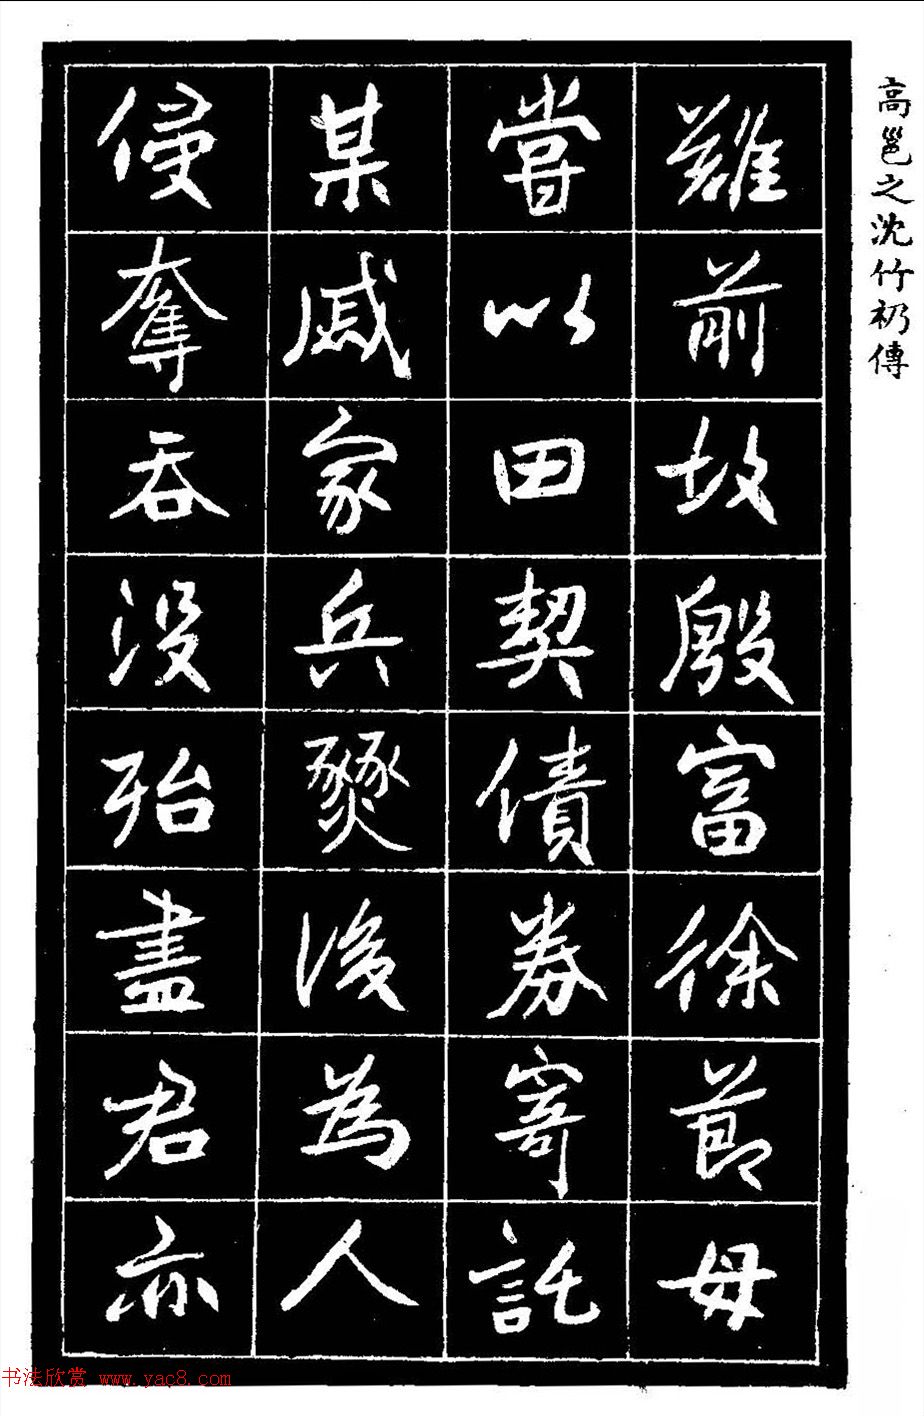 高邕之沈竹礽傳
難前故殷富徐節母
嘗以田契債券寄託
某戚家兵燹後為人
侵奪吞沒殆盡君亦
书法欣赏 www.yac8.com